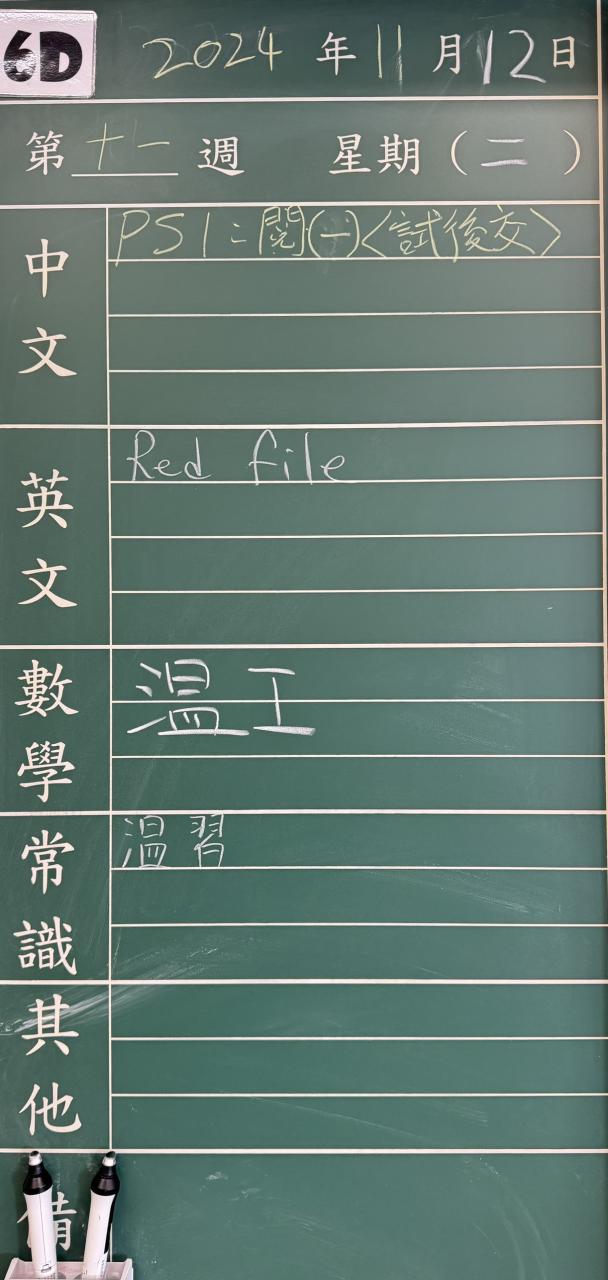 6D
2024年11月12日
第十一週 星期(二)
中文
PS1:閱(一)<試後交>
英文
Red file
數學
温工
常識
温習
其他
備